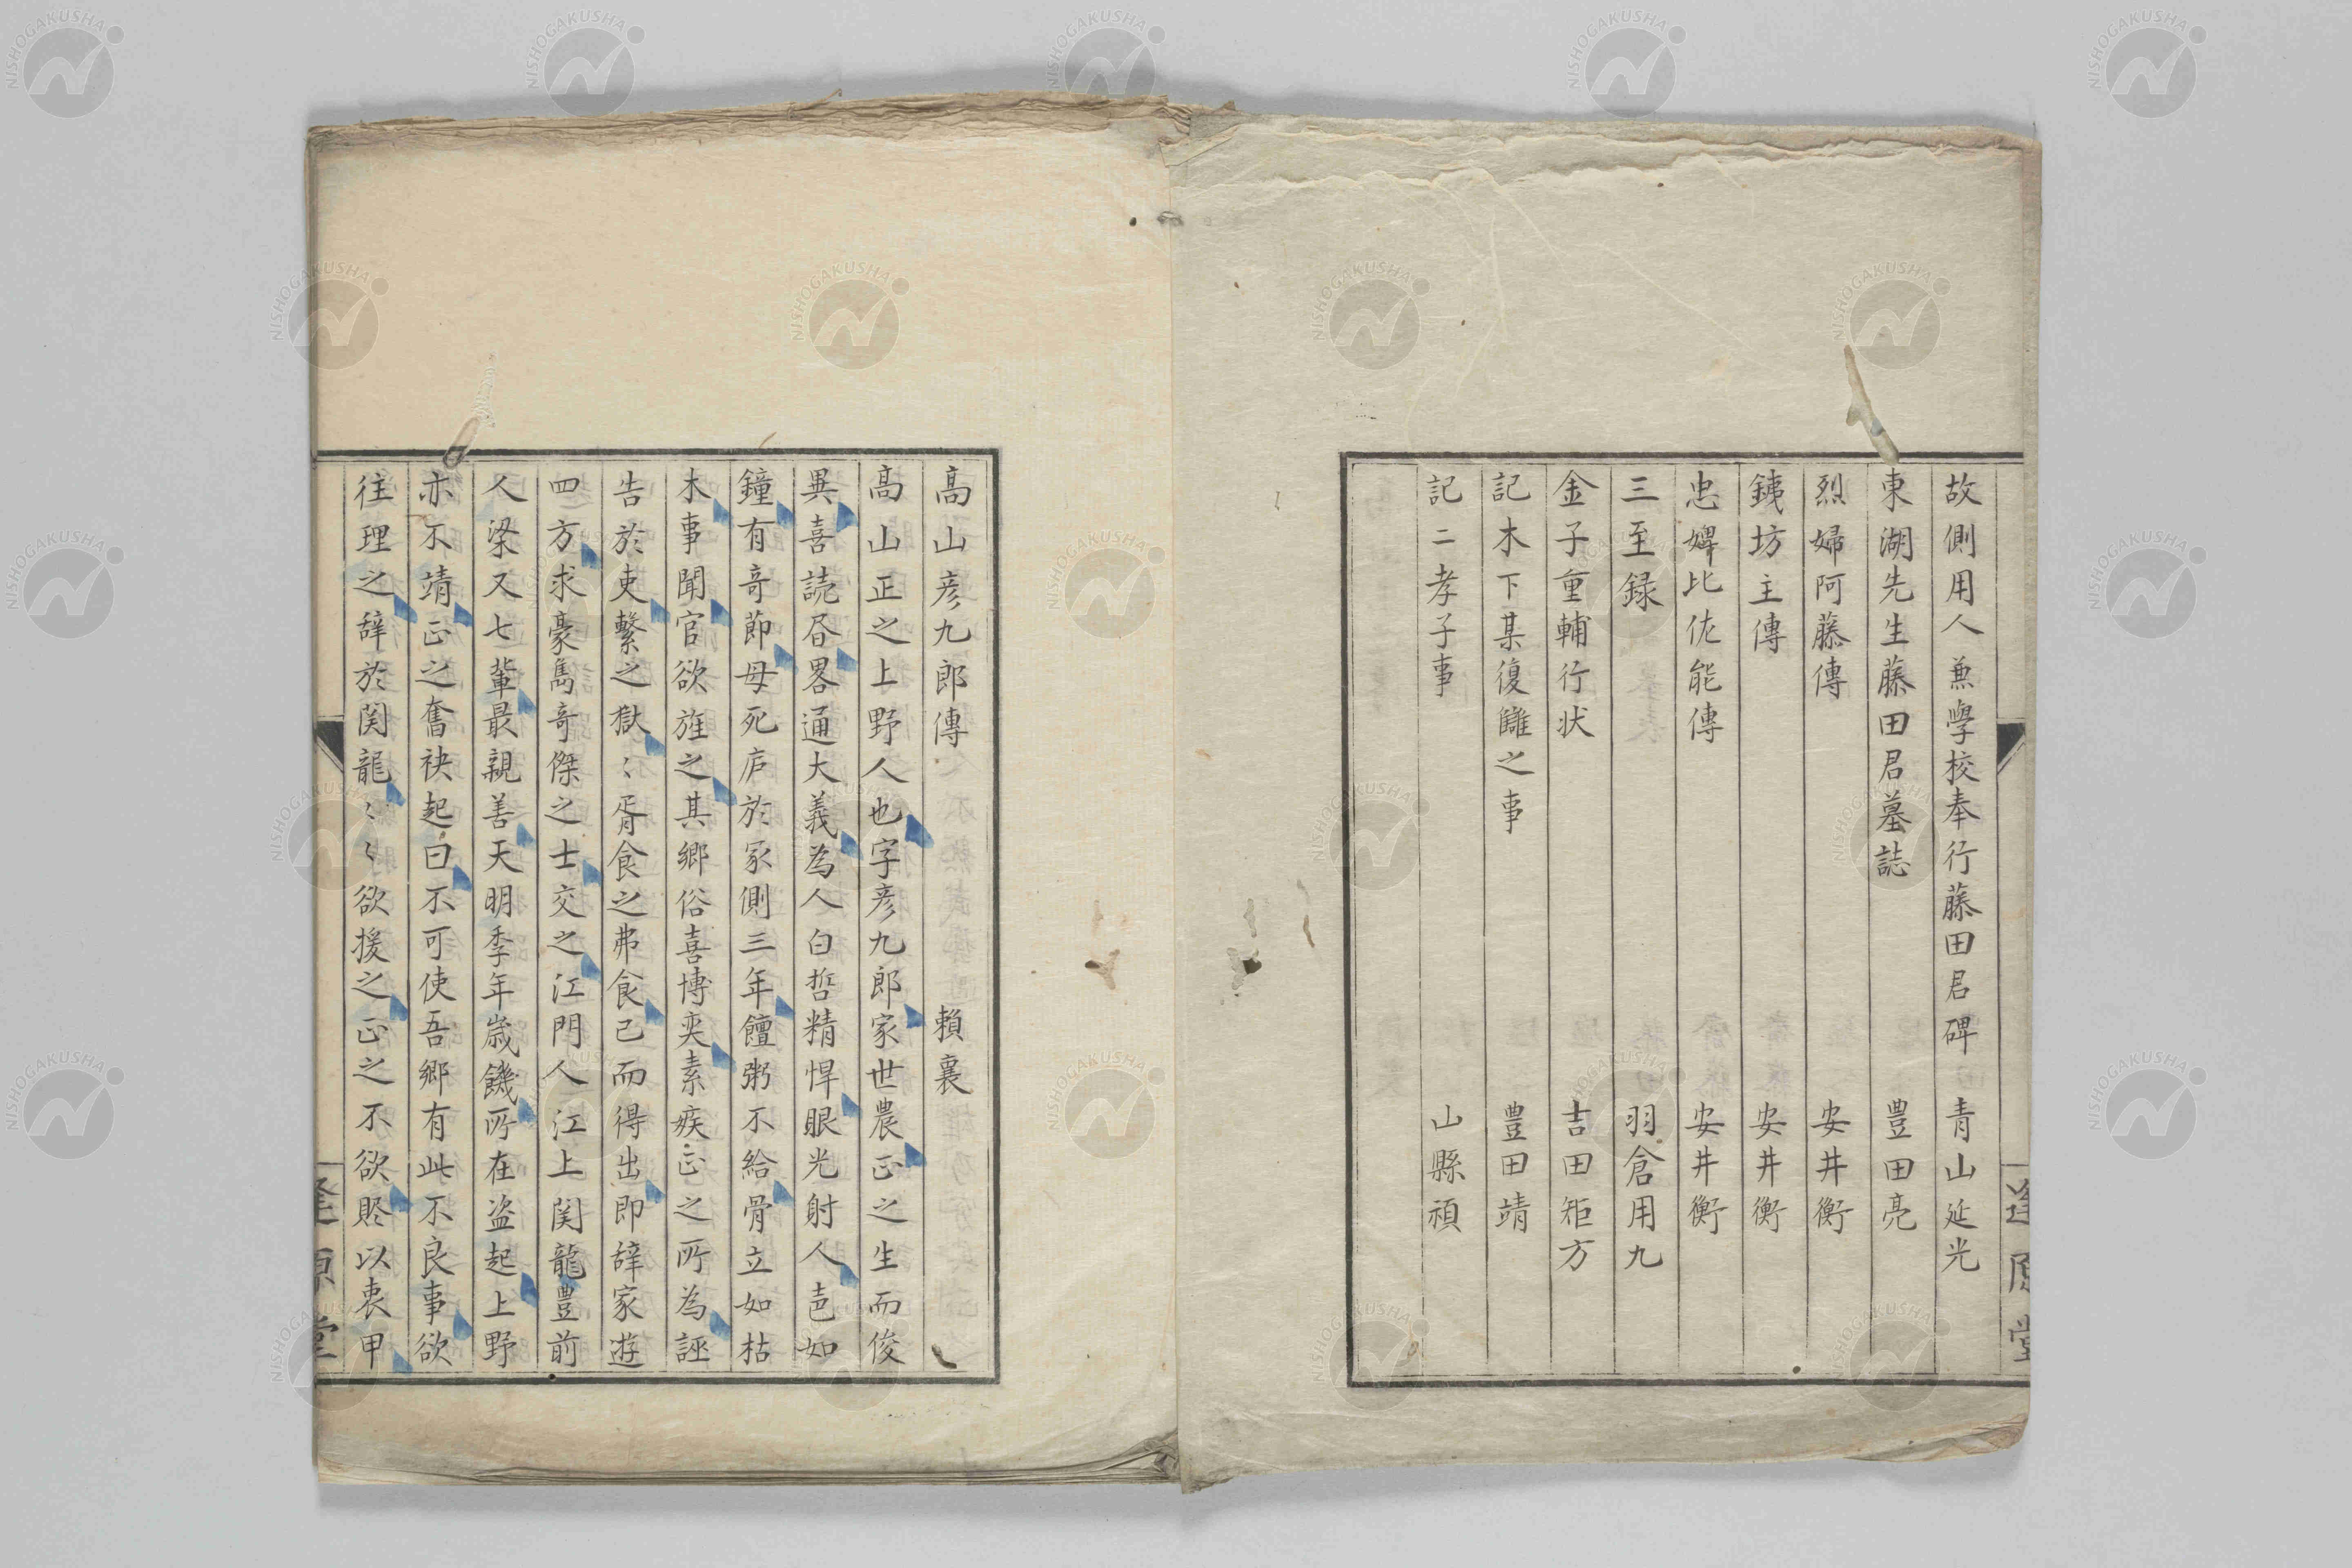 故側用人兼學校奉行藤田君碑 青山延光
東湖先生藤田君墓誌 豊田亮
烈婦阿藤傳 安井衡
銕坊主傳 安井衡
忠婢比佐能傳 安井衡
三至録 羽倉用九
金子重輔行状 吉田矩方
記木下某復讎之事 豊田靖
記二孝子事 山縣禎
逢原堂
高山彦九郎傳 頼襄
高山正之上野人也字彦九郎家世農正之生而俊
異喜読書畧通大義為人白晳精悍眼光射人声如
鐘有奇節母死庐於冢側三年饘粥不給骨立如枯
木事聞官欲旌之其郷俗喜博奕素疾正之所為誣
告於吏繋之獄〻胥食之弗食已而得出即辞家遊
四方求豪雋奇傑之士交之江門人江上関龍豊前
人梁又七輩最親善天明季年歳饑所在盗起上野
亦不靖正之奮袂起曰不可使吾郷有此不良事欲
往理之辞於関龍〻〻欲援之正之不欲贐以衷甲
逢原堂
NISHOGAKUSHA